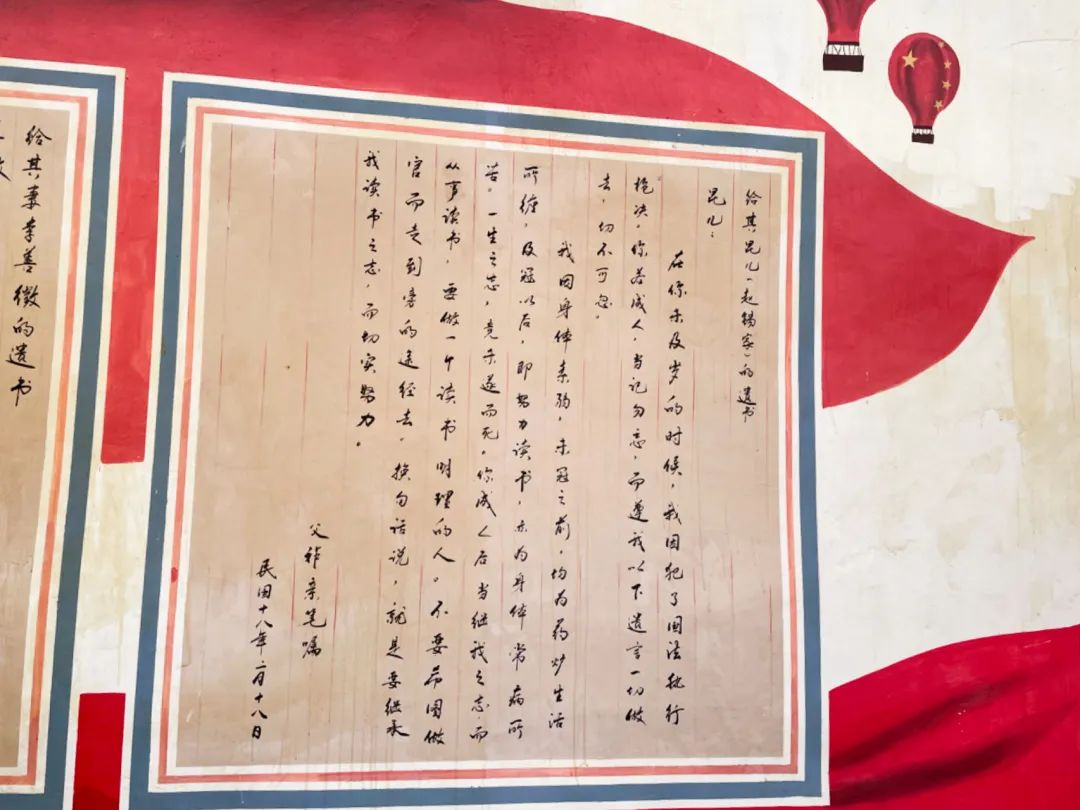 给其昆儿（锡）的遗书
昆儿：
在你未及岁的时候，我因犯了国法执行
枪决。你若成人，当记勿忘，而遵我以下遗言一切做
去，切不可忽。
我因身体素弱，未冠之前，均为药炉生活
所缠，及冠以后，即努力读书，亦为身体常病所
苦。一生之志，竟未遂而死。你成人后当继我之志，而
从事读书，要做一个读书明理的人。不要希图做
官而走到旁的途径去，换句话说，就是要继承
我读书之志，而切实努力。
父祚亲笔嘱
民国十八年二月十八日
给其妻李善徵的遗书